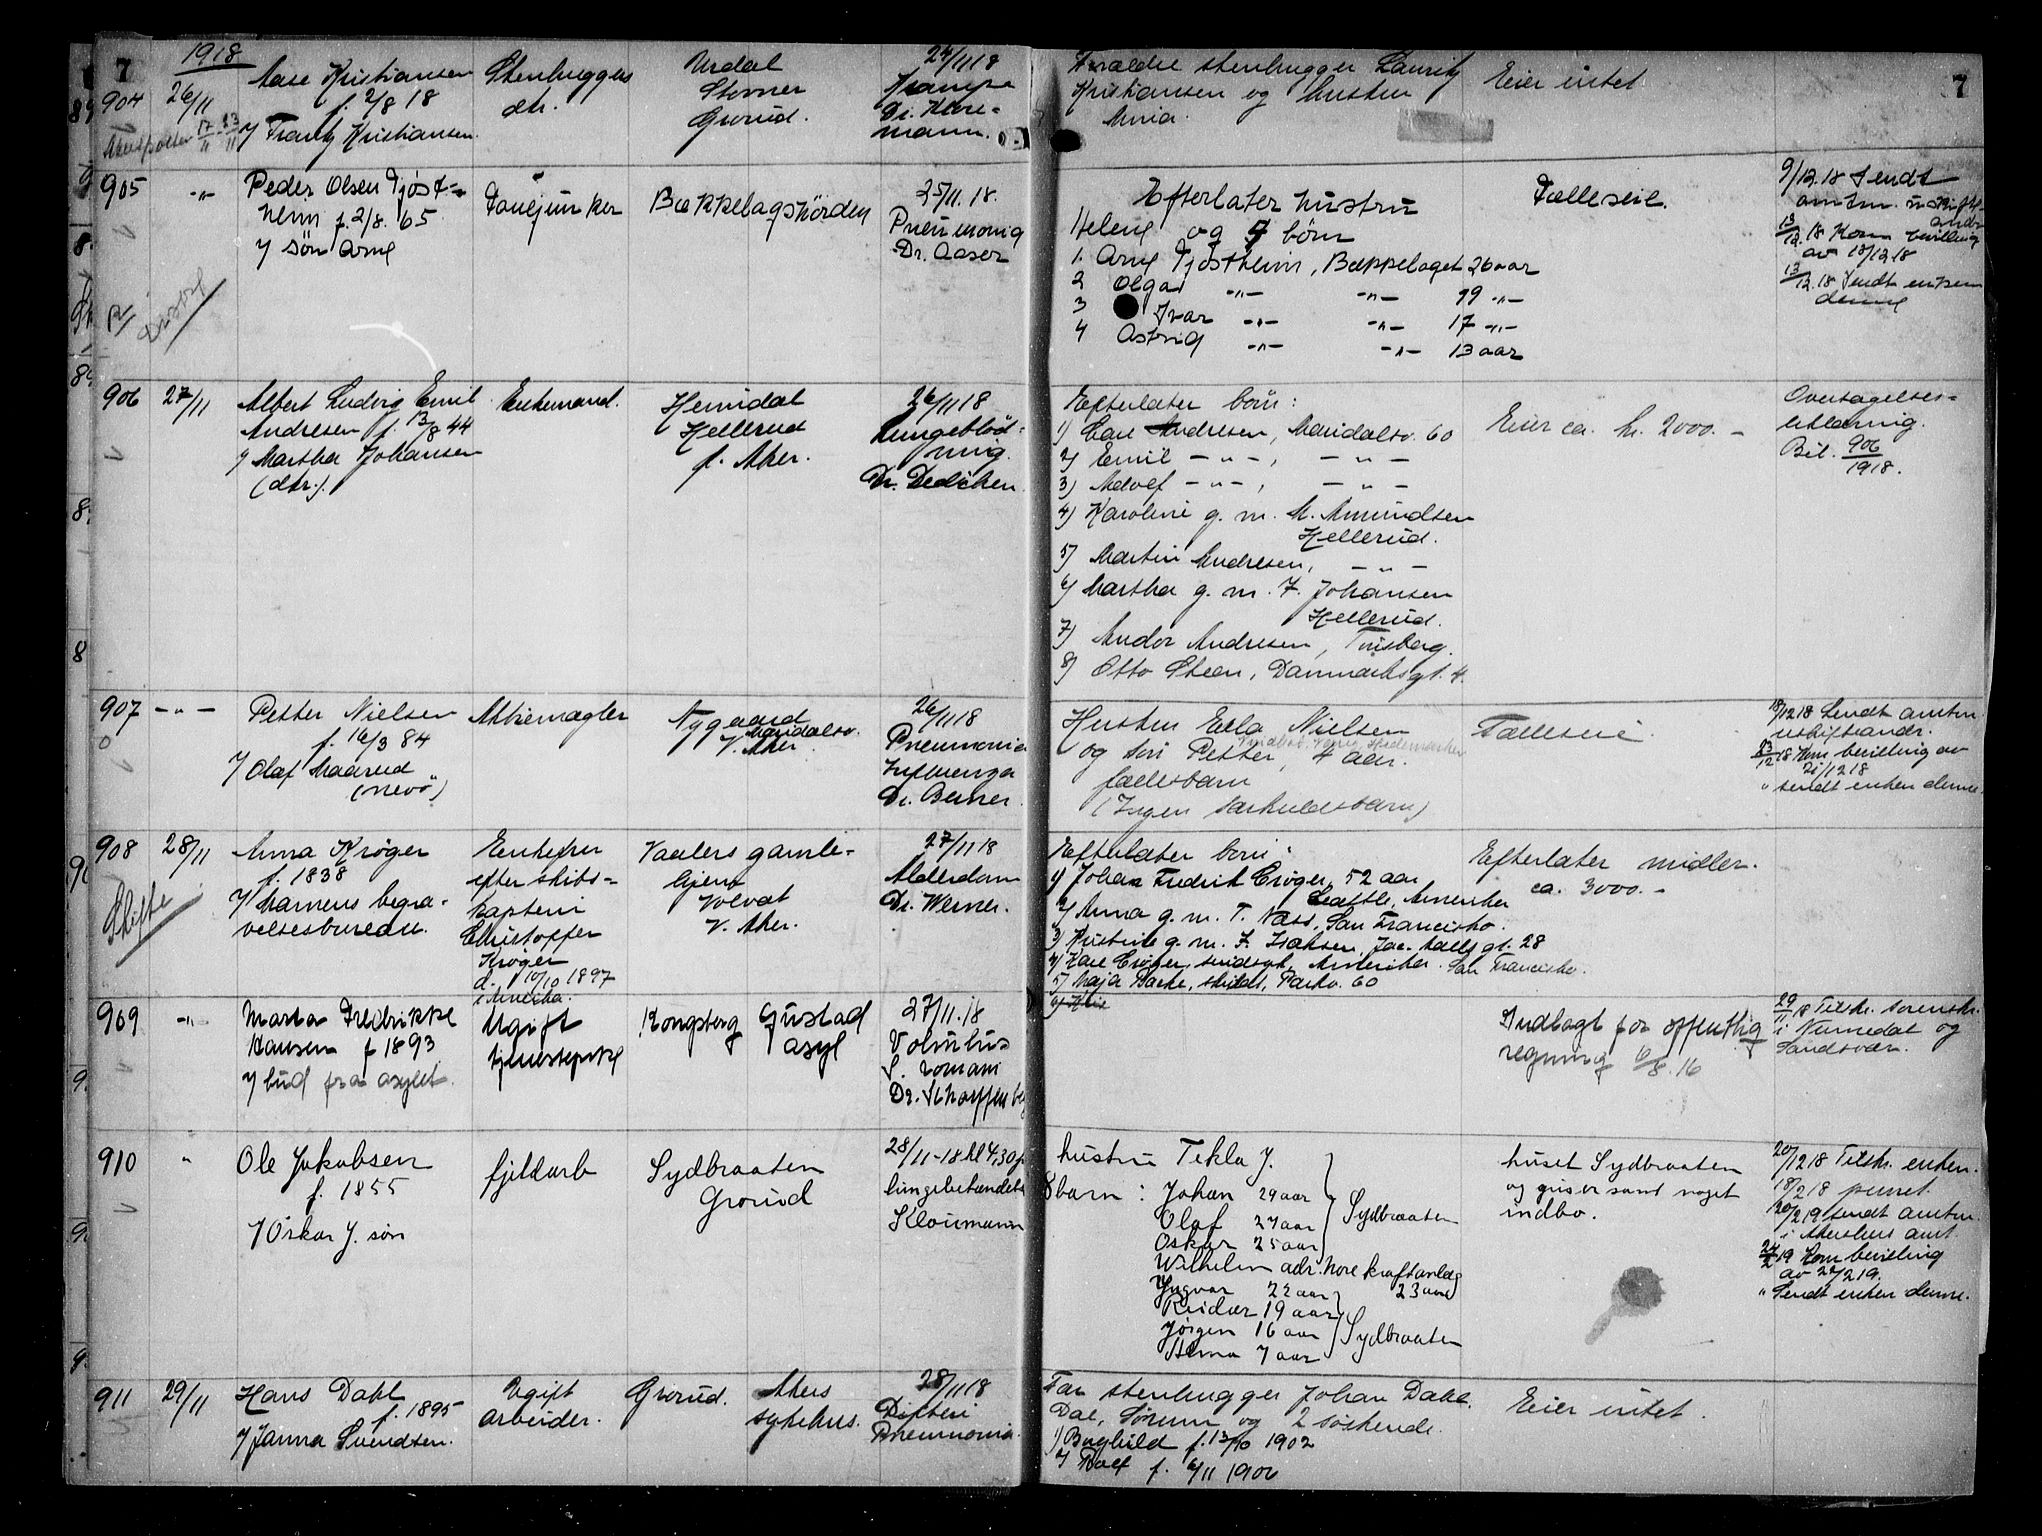 7
1918
904
26/11
Aase Kristiansen
f. 2/8 18
v/ Frantz Kristiansen
Stenhuggers
dtr.
Stovner
Grorud.
24/11 18
Krampe
mann.
Forældre stenhugger Lauritz
Kristiansen og hustru
Eier intet
7
905
-"-
Peder Olsen Tjøst-
heim f. 2/8. 65
v/ søn Arne
Bækkelagshøgden
25/11. 18.
Pneumonia
Dr. Aaser
Efterlater hustru
Helene og børn
1. Arne Tjøstheim, Bækkelaget 26 aar
2 Olga -"- -"- 19 -"-
3 Ivar -"- -"- 17 -"-
4 Astrid -"- -"- 13 aar
Fælleseie.
9/12.18 Sendt
amtm. uskifte
andr.
13/12.18 Kom bevilling
av 10/12 18
13/12.18 Sendt enken
denne
906
27/11
Albert Ludvig Emil
Andresen f. 13/8 44
v/ Martha Johansen
(dtr.).
Enkemand.
Heimdal
Hellerud
Ø. Aker.
26/11 18
Lungeblød-
ning.
Dr. Dedichen.
Efterlater børn:
1) Carl Andresen, Maridalsv. 60
2) Emil -"-, -"-
3) Adolf -"-, -"-
4) Karoline g. m. M. Amundsen
Hellerud.
5) Martin Andresen, -"-
6) Martha g. m. F. Johansen
Hellerud.
7) Andor Andresen, Tønsberg.
8) Otto Steen, Danmarksgt. 4.
Eier ca. kr. 2000.-
Overtagelses-
erklæring.
Bil. 906/1918.
907
-"-
Petter Nielsen
f. 16/3 84
v/ Olaf Maarud
(nevø)
Aktiemægler
Nygaard
Maridalsv.
V. Aker.
26/11 18
Pneumonia
Influenza
Dr. Berner.
Hustru Ella Nielsen
og søn Petter, 4 aar.
fællesbarn
(Ingen særkuldsbarn)
Fælleseie
18/12 18 Sendt amtm
uskifteandr.
23/12 18 Kom bevilling av
21/12 18
" sendt enken denne.
908
28/11
Skifte
Anna Krøger
f. 1838
v/ Marnens begra-
velsesbureau.
Enkefru
efter skibs-
kaptein
Christoffer
Krøger
d. 10/10 1897
i Amerika.
Vaalers gamle-
hjem
Volvat
V. Aker.
27/11 18
Alderdom
Dr. Werner.
Efterlater børn:
1) Johan Fredrik Crøger, 52 aar
Seattle, Amerika
2) Anna g. m. T. Næss, San Francisko.
3) Kristine g. m. F. Isaksen, Jac. Aalls gt. 28
4) Karl Crøger, sindssyk, Amerika. San Francisko.
5) Maja Backe, skildt, Parkv. 60
Efterlater midler.
ca. 3000.-
909
-"-
Marta Fredrikke
Hansen f 1893
v/ bud fra asylet.
Ugift
tjenestepike
Kongsberg
Gustad
asyl
27/11.18
Volvulus
S. romani
Dr. Scharffenberg
Indlagt for offentlig
regning 6/8. 16
29/11 18 Tilskr. sorenskr.
i Numedal og
Sandsvær.
910
"
Ole Jakobsen
f. 1855
v/ Oskar J. søn
fjeldarb
Sydbraaten
Grorud
28/11-18 kl 4,30
lungebetændelse
Kloumann
hustru Tekla J.
8 barn: Johan 29 aar
Olaf 27 aar
Oskar 25 aar
Sydbraaten
Wilhelm adr. Nore kraftanlæg
23 aar
Yngvar 22 aar
Reidar 19 aar
Jørgen 16 aar
7 aar
Sydbraaten
huset Sydbraaten
og gris er samt noget
indbo.
20/12 18 Tilskr. enken.
18/2 18 purret.
20/2 19 sendt amtm.
i Akershus amt.
24/2 19 Kom bevilling
av 22/2 19.
" Sendt enken denne.
911
29/11
Hans Dahl
f. 1895
v/ Janna Svendsen.
Ugift
arbeider.
Grorud.
Akers
sykehus.
28/11 18
Difteri
Pneumonia.
Far stenhugger Johan Dahl.
Dal, Sørum og 2 søskende.
1) Borghild f. 13/10 1902
2) Rolf f. 6/11 1906
Eier intet.